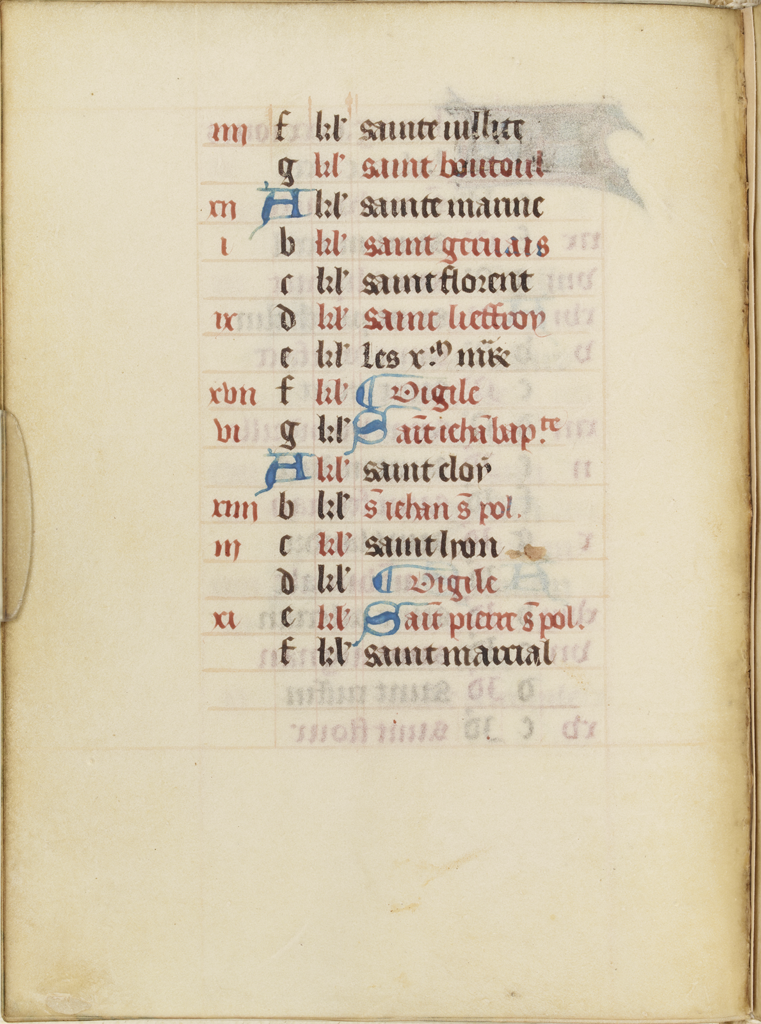 iiii f kl' sainte iullite
g kl' saint boutoul
xii A kl' sainte marine
i b kl' saint geruais
c kl' saint florent
ix d kl' saint lieffroy
e kl' les x. m mr̄e
xvii f kl' Vigile
vi g kl' Sait̄ iehā bap.te
A kl' saint eloy
xiiii b kl' s̄ iehan s̄ pol.
iii c kl' saint lyon
d kl' Vigile
xi e kl' Sait̄ pierre s̄ pol.
f kl' saint marcial